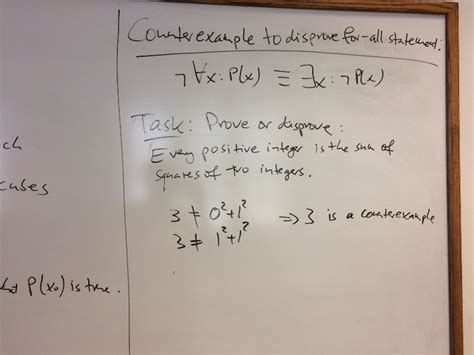 Counterexample to disprove for-all statement:
¬∀x: P(x) ≡ ∃x: ¬P(x)
Task: Prove or disprove:
Every positive integer is the sum of
squares of two integers.
3 ≠ 0²+1² ⇒ 3 is a counterexample
3 ≠ 1²+1²
P(x₀) is true.